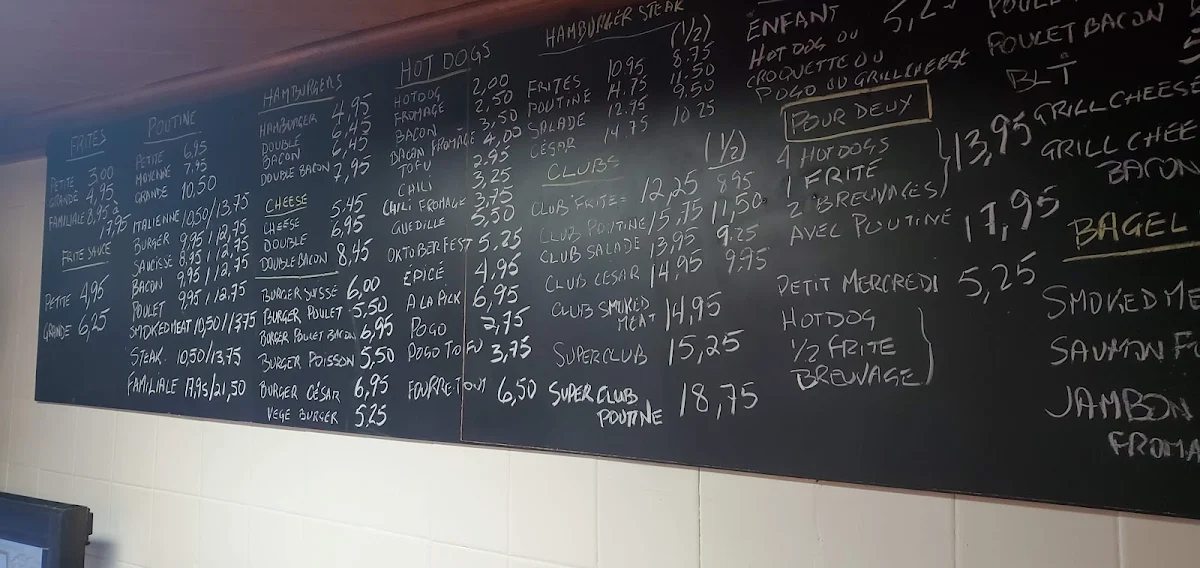 FRITES
PETITE 3,00
GRANDE 4,95
FAMILIALE 8,95
17,95
FRITE SAUCE
PETITE 4,95
GRANDE 6,25
POUTINE
PETITE 6,95
MOYENNE 7,95
GRANDE 10,50
ITALIENNE 10,50/13,75
BURGER 9,95/12,75
SAUCISSE 8,75/12,75
BACON 9,95/12,75
POULET 9,95/12,75
SMOKED MEAT 10,50/13,75
STEAK 10,50/13,75
FAMILIALE 17,95/21,50
HAMBURGERS
HAMBURGER 4,95
DOUBLE 6,45
BACON 6,45
DOUBLE BACON 7,95
CHEESE
CHEESE 5,45
DOUBLE 6,95
DOUBLE BACON 8,45
BURGER SUISSE 6,00
BURGER POULET 5,50
BURGER POULET BACON 6,95
BURGER POISSON 5,50
BURGER CÉSAR 6,95
VEGE BURGER 5,25
HOT DOGS
HOTDOG 2,00
FROMAGE 2,50
BACON 3,50
BACON FROMAGE 4,00
TOFU 2,95
CHILI 3,25
CHILI FROMAGE 3,75
GUEDILLE 5,50
OKTOBERFEST 5,25
ÉPICÉ 4,95
A LA PICK 6,95
POGO 2,75
POGO TOFU 3,75
FOURRE TOUT 6,50
HAMBURGER STEAK
(1/2)
FRITES 10.95 8.75
POUTINE 14.75 11.50
SALADE 12.75 9,50
CÉSAR 14.75 10.25
CLUBS (1/2)
CLUB FRITE 12,25 8,95
CLUB POUTINE 15,75 11,50
CLUB SALADE 13,95 9,25
CLUB CESAR 14,95 9,95
CLUB SMOKED
MEAT 14,95
SUPERCLUB 15,25
SUPER CLUB
POUTINE 18,75
ENFANT
HOT DOG OU
CROQUETTE OU
POGO OU GRILLCHEESE
POUR DEUX
4 HOTDOGS
1 FRITE
2 BREUVAGES 13,95
AVEC POUTINE 17,95
PETIT MERCREDI 5,25
HOTDOG
1/2 FRITE
BREUVAGE
POULET BACON
BLT
GRILLCHEESE
GRILL CHEE
BACON
BAGEL
SMOKED ME
SAUMON FU
JAMBON
FROMA